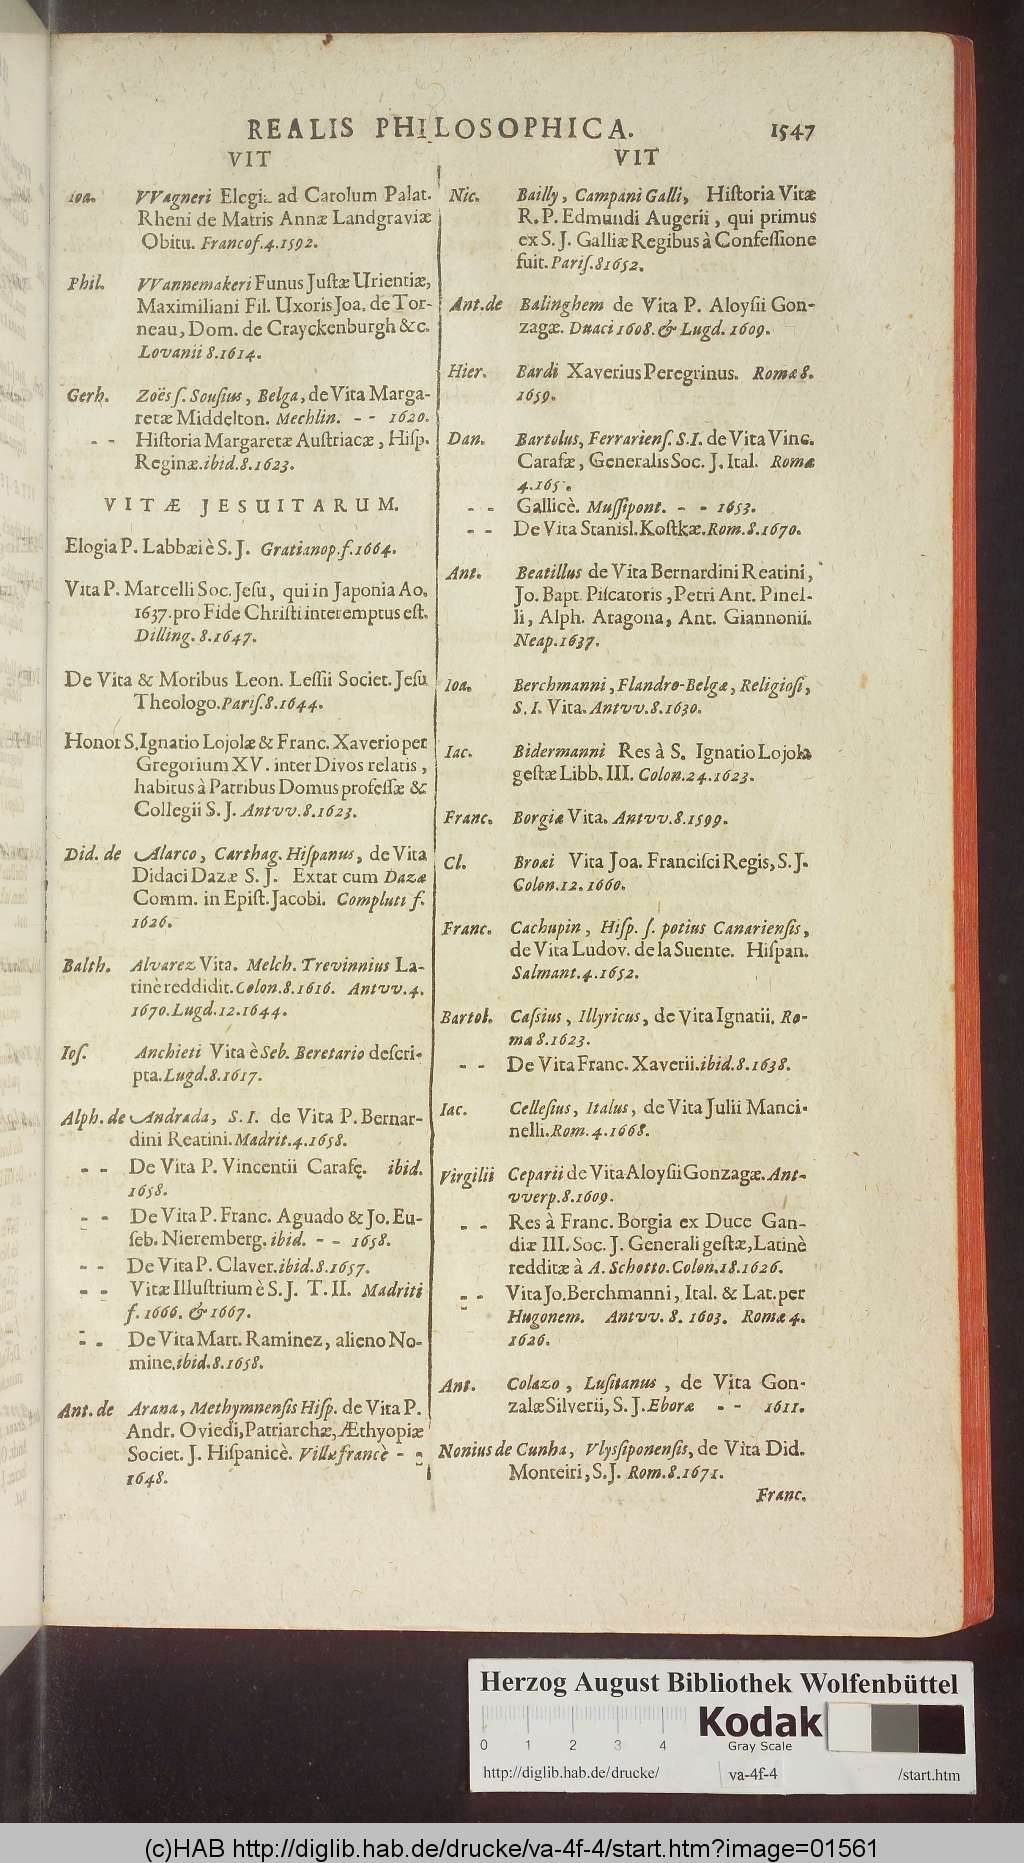 REALIS PHILOSOPHICA. 1547
VIT
Ioa. VVagneri Elegia ad Carolum Palat.
Rheni de Matris Annæ Landgraviæ
Obitu. Francof. 4. 1592.
Phil. VVannemakeri Funus Juſtæ Urientiæ,
Maximiliani Fil. Uxoris Joa. de Tor-
neau, Dom. de Crayckenburgh &c.
Lovanii 8. 1614.
Gerh. Zoës ſ. Souſius, Belga, de Vita Marga-
retæ Middelton. Mechlin. - - 1620.
- - Hiſtoria Margaretæ Auſtriacæ, Hiſp.
Reginæ. ibid. 8. 1623.
VITÆ JESUITARUM.
Elogia P. Labbæi è S. J. Gratianop. f. 1664.
Vita P. Marcelli Soc. Jeſu, qui in Japonia Ao.
1637. pro Fide Chriſti interemptus eſt.
Dilling. 8. 1647.
De Vita & Moribus Leon. Leſſii Societ. Jeſu
Theologo. Pariſ. 8. 1644.
Honor S. Ignatio Lojolæ & Franc. Xaverio per
Gregorium XV. inter Divos relatis,
habitus à Patribus Domus profeſſæ &
Collegii S. J. Antvv. 8. 1623.
Did. de Alarco, Carthag. Hiſpanus, de Vita
Didaci Dazæ S. J. Extat cum Dazæ
Comm. in Epiſt. Jacobi. Compluti f.
1626.
Balth. Alvarez Vita. Melch. Trevinnius La-
tinè reddidit. Colon. 8. 1616. Antvv. 4.
1670. Lugd. 12. 1644.
Ioſ. Anchieti Vita è Seb. Beretario deſcri-
pta. Lugd. 8. 1617.
Alph. de Andrada, S. I. de Vita P. Bernar-
dini Reatini. Madrit. 4. 1658.
- - De Vita P. Vincentii Carafę. ibid.
1658.
- - De Vita P. Franc. Aguado & Jo. Eu-
ſeb. Nieremberg. ibid. - - 1658.
- - De Vita P. Claver. ibid. 8. 1657.
- - Vitæ Illuſtrium è S. J. T. II. Madriti
f. 1666. & 1667.
- - De Vita Mart. Raminez, alieno No-
mine. ibid. 8. 1658.
Ant. de Arana, Methymnenſis Hiſp. de Vita P.
Andr. Oviedi, Patriarchæ, Æthyopiæ
Societ. J. Hiſpanicè. Villæfrancè - -
1648.
VIT
Nic. Bailly, Campani Galli, Hiſtoria Vitæ
R. P. Edmundi Augerii, qui primus
ex S. J. Galliæ Regibus à Confeſſione
fuit. Pariſ. 8 1652.
Ant. de Balinghem de Vita P. Aloyſii Gon-
zagæ. Duaci 1608. & Lugd. 1609.
Hier. Bardi Xaverius Peregrinus. Romæ 8.
1659.
Dan. Bartolus, Ferrarienſ. S. I. de Vita Vinc.
Carafæ, Generalis Soc. J. Ital. Romæ
4. 165 .
- - Gallicè. Muſſipont. - - 1653.
- - De Vita Stanisl. Koſtkæ. Rom. 8. 1670.
Ant. Beatillus de Vita Bernardini Reatini,
Jo. Bapt. Piſcatoris, Petri Ant. Pinel-
li, Alph. Aragona, Ant. Giannonii.
Neap. 1637.
Ioa. Berchmanni, Flandro-Belgæ, Religioſi,
S. I. Vita. Antvv. 8. 1630.
Iac. Bidermanni Res à S. Ignatio Lojola
geſtæ Libb. III. Colon. 24. 1623.
Franc. Borgiæ Vita. Antvv. 8. 1599.
Cl. Broæi Vita Joa. Franciſci Regis, S. J.
Colon. 12. 1660.
Franc. Cachupin, Hiſp. ſ. potius Canarienſis,
de Vita Ludov. de la Suente. Hiſpan.
Salmant. 4. 1652.
Bartol. Caſsius, Illyricus, de Vita Ignatii. Ro-
mæ 8. 1623.
- - De Vita Franc. Xaverii. ibid. 8. 1638.
Iac. Celleſius, Italus, de Vita Julii Manci-
nelli. Rom. 4. 1668.
Virgilii Ceparii de Vita Aloyſii Gonzagæ. Ant-
vverp. 8. 1609.
- - Res à Franc. Borgia ex Duce Gan-
diæ III. Soc. J. Generali geſtæ, Latinè
redditæ à A. Schotto. Colon. 18. 1626.
- - Vita Jo. Berchmanni, Ital. & Lat. per
Hugonem. Antvv. 8. 1603. Romæ 4.
1626.
Ant. Colazo, Luſitanus, de Vita Gon-
zalæ Silverii, S. J. Eboræ - - 1611.
Nonius de Cunha, Vlyſſiponenſis, de Vita Did.
Monteiri, S. J. Rom. 8. 1671.
Franc.
Herzog August Bibliothek Wolfenbüttel
0 1 2 3 4
Kodak
Gray Scale
http://diglib.hab.de/drucke/ va-4f-4 /start.htm
(c)HAB http://diglib.hab.de/drucke/va-4f-4/start.htm?image=01561